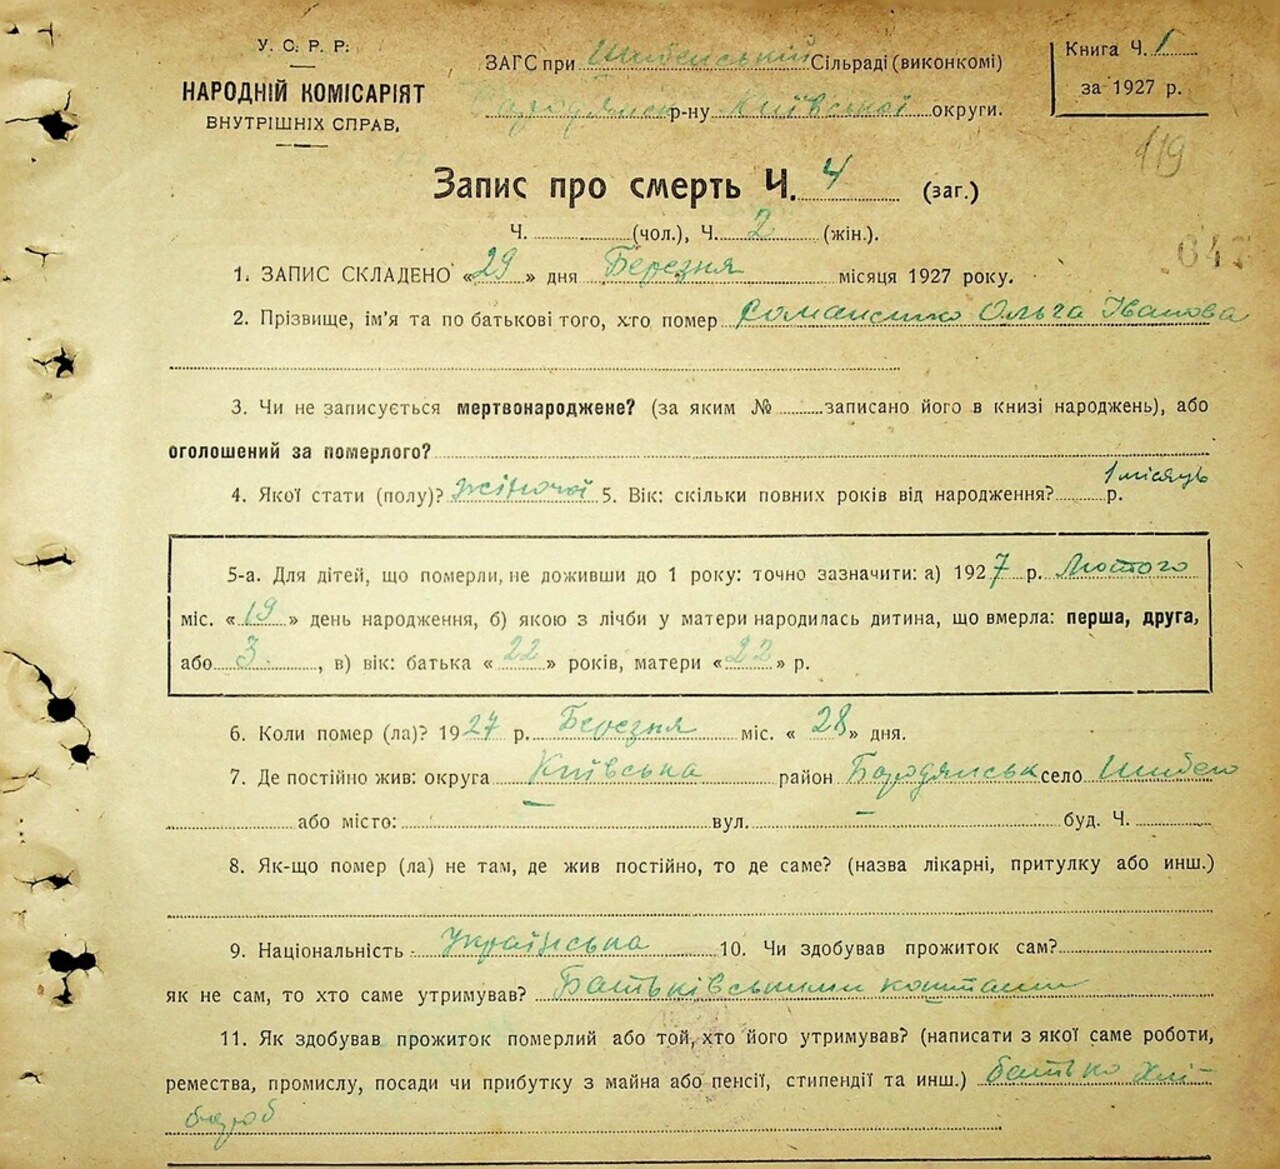 У. С. Р. Р.
НАРОДНІЙ КОМІСАРІЯТ
ВНУТРІШНІХ СПРАВ,
ЗАГС при Шибенській Сільраді (виконкомі)
Бородянск р-ну Київської округи.
Книга Ч. 1
за 1927 р.
119
Запис про смерть Ч. 4 (заг.)
Ч. (чол.), Ч. 2 (жін.).
647
1. ЗАПИС СКЛАДЕНО «29» дня Березня місяця 1927 року.
2. Прізвище, ім'я та по батькові того, хто помер Романенко Ольга Іванова
3. Чи не записується мертвонароджене? (за яким № записано його в книзі народжень), або
оголошений за померлого?
4. Якої стати (полу)? жіночої 5. Вік: скільки повних років від народження? 1 місяць р.
5-а. Для дітей, що померли, не доживши до 1 року: точно зазначити: а) 1927 р. Лютого
міс. «19» день народження, б) якою з лічби у матери народилась дитина, що вмерла: перша, друга,
або 3. , в) вік: батька «22» років, матери «22» р.
6. Коли помер (ла)? 1927 р. Березня міс. «28» дня.
7. Де постійно жив: округа Київська район Бородянськ село Шибено
або місто: — вул. — буд. Ч.
8. Як-що помер (ла) не там, де жив постійно, то де саме? (назва лікарні, притулку або инш.)
9. Національність Українська 10. Чи здобував прожиток сам?
як не сам, то хто саме утримував? Батьківськими коштами
11. Як здобував прожиток померлий або той, хто його утримував? (написати з якої саме роботи,
ремества, промислу, посади чи прибутку з майна або пенсії, стипендії та инш.) батько хлі-
бороб